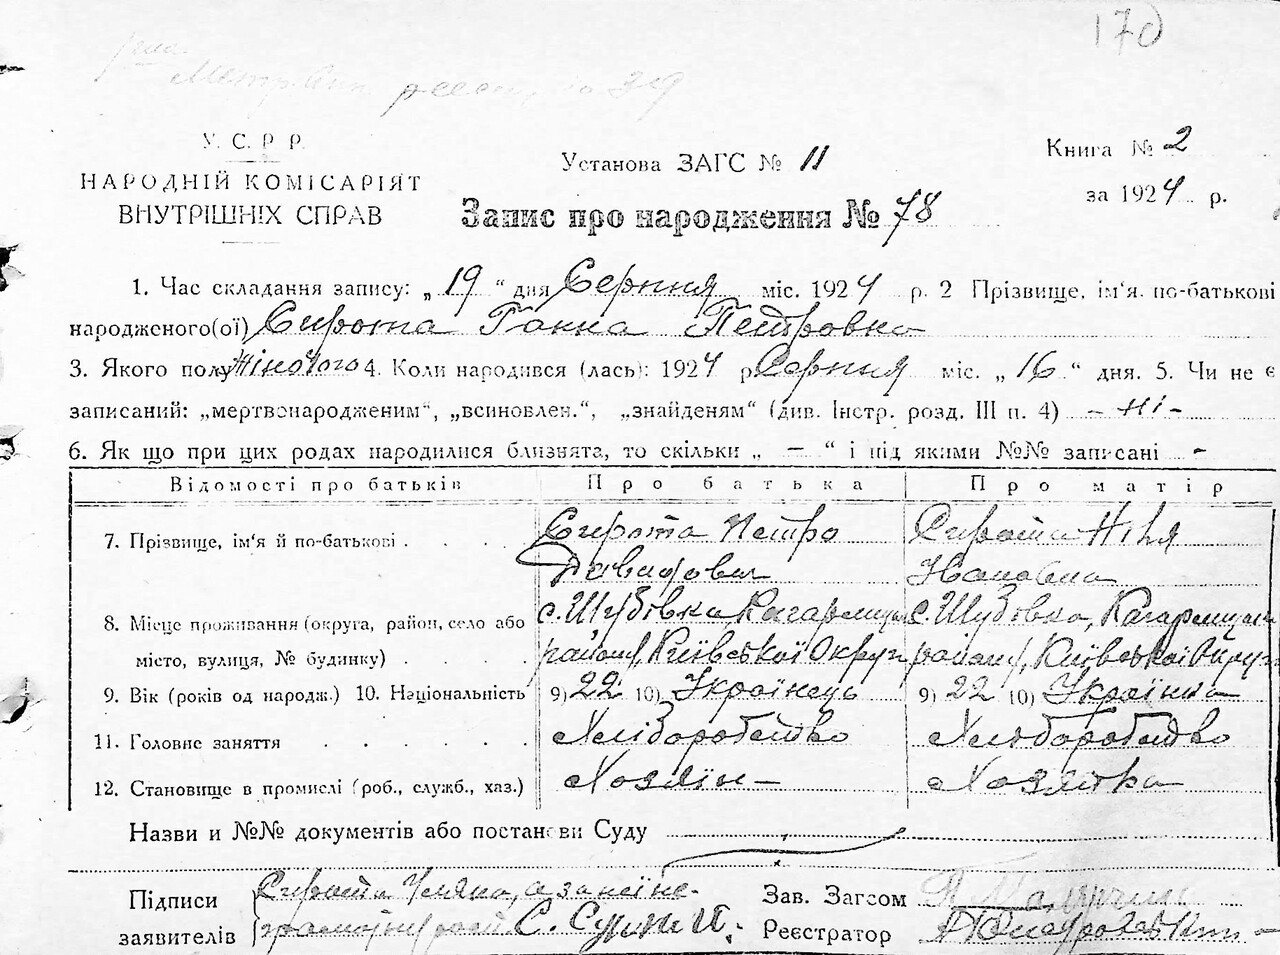 170
реест. 39
У. С. Р Р.
НАРОДНІЙ КОМІСАРІЯТ
ВНУТРІШНІХ СПРАВ
Установа ЗАГС № 11
Книга № 2
за 1924 р.
Запис про народження № 78
1. Час складання запису: „ 19 “ дня Серпня міс. 1924 р. 2 Прізвище, ім‘я. по-батькові
народженого(ої) Сирота Ганна Петровна
3. Якого полу Жіночого 4. Коли народився (лась): 1924 р Серпня міс. „ 16 “ дня. 5. Чи не є
записаний: „мертвонародженим“, „всиновлен.“, „знайденям“ (див. Інстр. розд. III п. 4) - ні -
6. Як що при цих родах народилися близнята, то скільки „ — “ і під якими №№ записані -
Відомості про батьків Про батька Про матір
7. Прізвище, ім‘я й по-батькові . . . . Сирота Петро Сирота
Давидович Ивановна
8. Місце проживання (округа, район, село або с. Шубівка, Кагарлицьк с. Шубовка, Кагарлицьк
місто, вулиця, № будинку) . . . . району, Київської Округи району, Київської Округи
9. Вік (років од народж.) 10. Національність 9) 22 10) Українець 9) 22 10) Українка
11. Головне заняття . . . . . . Хліборобство Хліборобство
12. Становище в промислі (роб., служб., хаз.) Хозяїн - Хозяйка
Назви и №№ документів або постанови Суду
Підписи Сирота Уляна, а за неї не-
заявителів грамотну С.
Зав. Загсом
Реєстратор